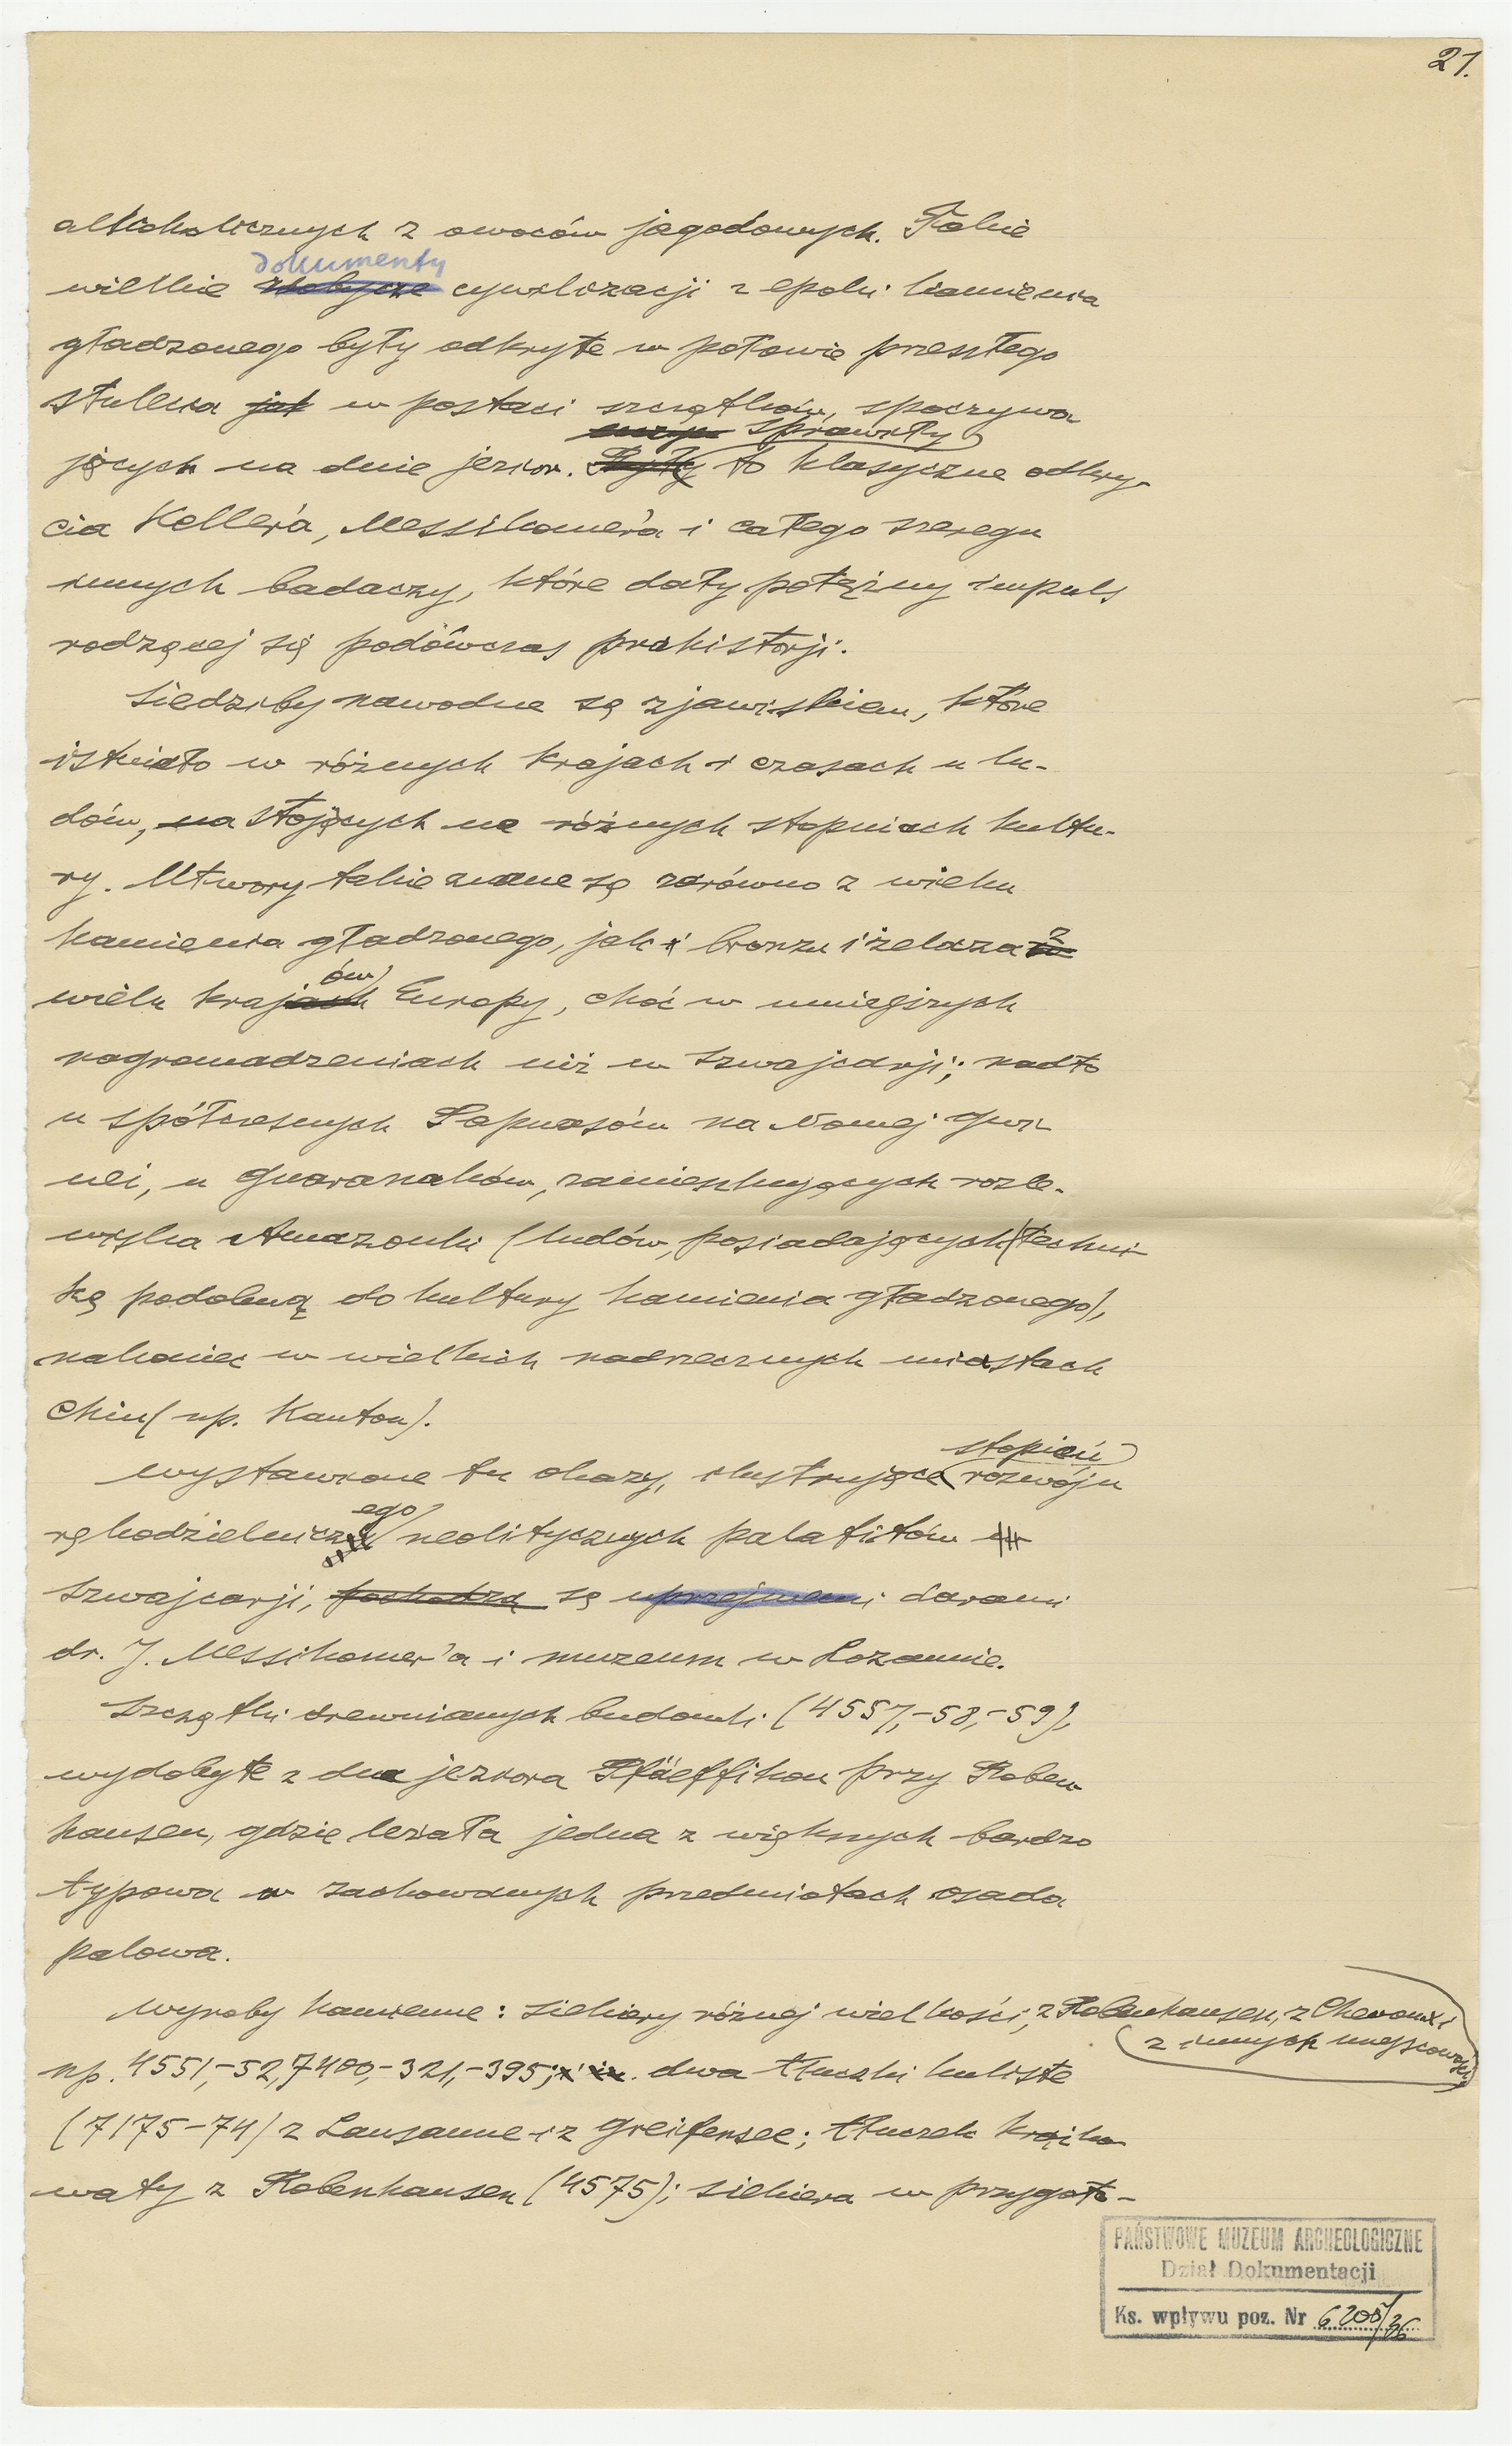 21.
alkoholicznych z owoców jagodowych. Takie
dokumenty
wielkie zdobycze cywilizacji z epoki kamienia
gładzonego były odkryte w połowie przeszłego
stulecia jak w postaci szczątków, spoczywa
sprawiły
jących na dnie jezior. Były to klasyczne odkry-
cia Keller'a, Messikomer'a i całego szeregu
innych badaczy, które dały potężny impuls
rodzącej się podówczas prahistorji.
Siedziby nawodne są zjawiskiem, które
istniało w różnych krajach i czasach u lu-
dów, na stojących na różnych stopniach kultu-
ry. Utwory takie znane są zarówno z wieku
kamienia gładzonego, jak i bronzu i żelaza w z
ów
wielu krajach Europy, choć w mniejszych
nagromadzeniach niż w Szwajcarji; nadto
u spółczesnych Papuasów na Nowej Gwi-
nei, u Guaranaków, zamieszkujących rozle-
wiska Amazonki (ludów, posiadających techni-
kę podobną do kultury kamienia gładzonego),
nakoniec w wielkich nadrzecznych miastach
Chin (np. Kanton).
stopień
Wystawione tu okazy, ilustrujące rozwoju
ego
rękodzielnicz neolitycznych palafitów w
Szwajcarji, pochodzą są uprzejmemi darami
dr. J. Messikomer'a i muzeum w Lozannie.
Szczątki drewnianych budowli (4557,-58,-59),
wydobyte z dna jeziora Pfäeffikon przy Roben
hausen, gdzie leżała jedna z większych bardzo
typowa w zachowanych przedmiotach osada
palowa.
Wyroby kamienne: siekiery różnej wielkości, z Robenhausen, z Chevroux i
z innych miejscowości
np. 4551,-52, 7400,-321,-395; i in. dwa tłuczki kuliste
(7175-74) z Lausanne i z Greifensee; tłuczek krążko
waty z Robenhausen (4575); siekiera w przygoto-
PAŃSTWOWE MUZEUM ARCHEOLOGICZNE
Dział Dokumentacji
Ks. wpływu poz. Nr 6208/36